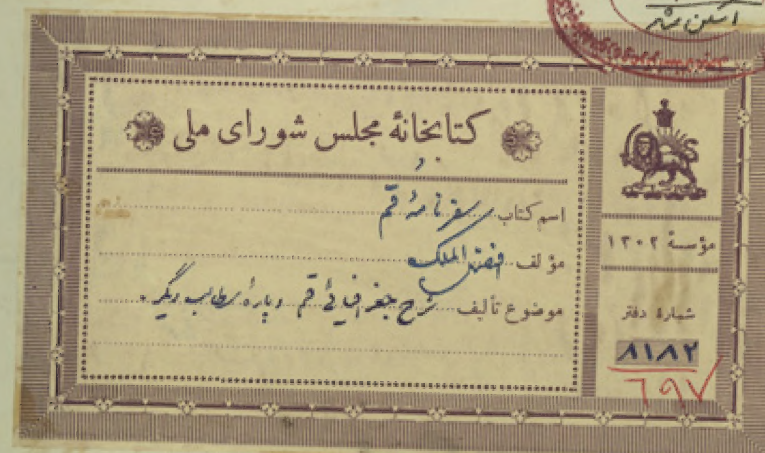 کتابخانهٔ مجلس شورای ملی
اسم کتاب سفرنامهٔ قم
مؤلف افضل الملک
موضوع تألیف شرح جغرافیائی قم و پارهٔ مطالب دیگر.
مؤسسهٔ ۱۳۰۲
شمارهٔ دفتر
۸۱۸۲
۶۹۷